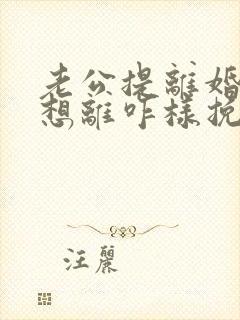 老公提離婚
想離咋樣挽
汪麗